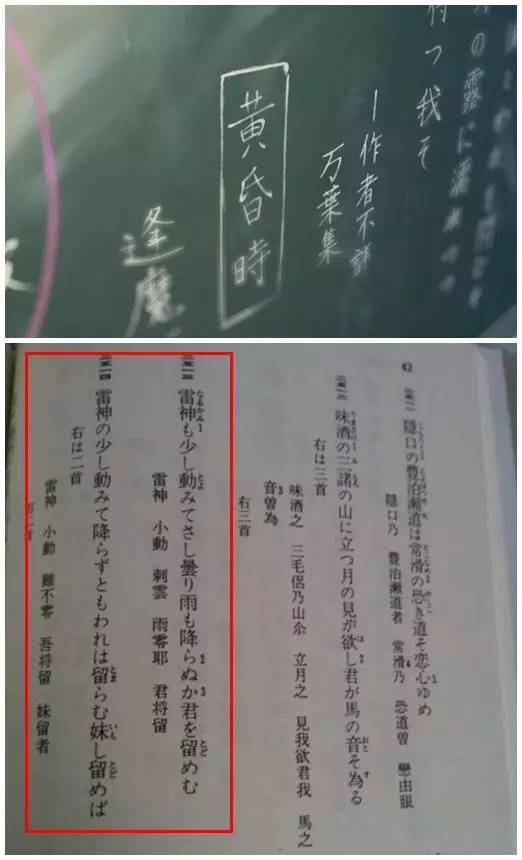 の露に濡れつつ
待つ我そ
ー作者不詳
万葉集
黄昏時
逢魔
42
二五一一 隠口の豊泊瀬道は常滑の恐き道そ恋心ゆめ
隠口乃 豊泊瀬道者 常滑乃 恐道曽 戀由眼
二五一二 味酒の三諸の山に立つ月の見が欲し君が馬の音そ為る
右は三首
味酒之 三毛侶乃山尒 立月之 見我欲君我 馬之
音曽為
右三首
二五一三 雷神も少し動みてさし曇り雨も降らぬか君を留めむ
雷神 小動 刺雲 雨零耶 君将留
二五一四 雷神の少し動みて降らずともわれは留らむ妹し留めば
右は二首
雷神 小動 雖不零 吾将留 妹留者
右二首